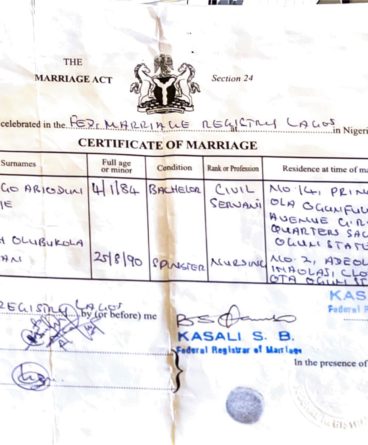 THE
MARRIAGE ACT
Section 24
celebrated in the FED. MARRIAGE REGISTRY LAGOS in Nigeri
CERTIFICATE OF MARRIAGE
Surnames Full age or minor Condition Rank or Profession Residence at time of ma
GO ARIODUN 4/1/84 BACHELOR CIVIL NO 141, PRIN
E SERVANT OLA OGUNFU
AVENUE GIR
QUARTERS SAG
OGUN STATE
OLUBUKOLA
ANI 25/8/90 SPINSTER NURSING NO. 2, ADEOL
CLO
OTA OGUN S
KAS
Federal R
REGISTRY LAGOS by (or before) me
KASALI S. B.
Federal Registrar of Marriage
In the presence of